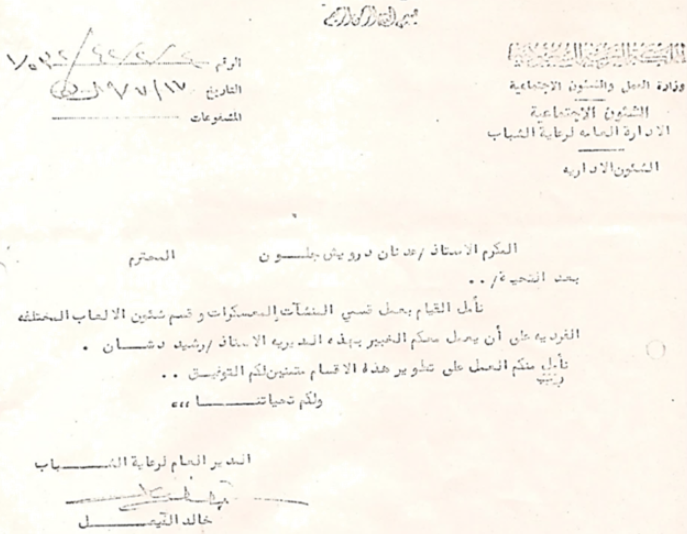 بسم الله الرحمن الرحيم
المملكة العربية السعودية
وزارة العمل والشئون الاجتماعية
الشئون الاجتماعية
الادارة العامه لرعاية الشباب
الشئون الاداريه
الرقم
التاريخ
المشفوعات
المكرم الاستاذ /عدنان درويش جلـــون المحترم
بعد التحية/ ..
نأمل القيام بعمل قسمي المنشآت والمعسكرات و قسم شئون الالعاب المختلفه
الفرديه على أن يعمل معكم الخبير بهذه المديريه الاستاذ /رشيد دشـــان .
نأمل منكم العمل على تطوير هذه الاقسام متمنين لكم التوفيـــق ..
ولكم تحياتنـــــــا ،،،
المدير العام لرعاية الشـــــباب
خالد